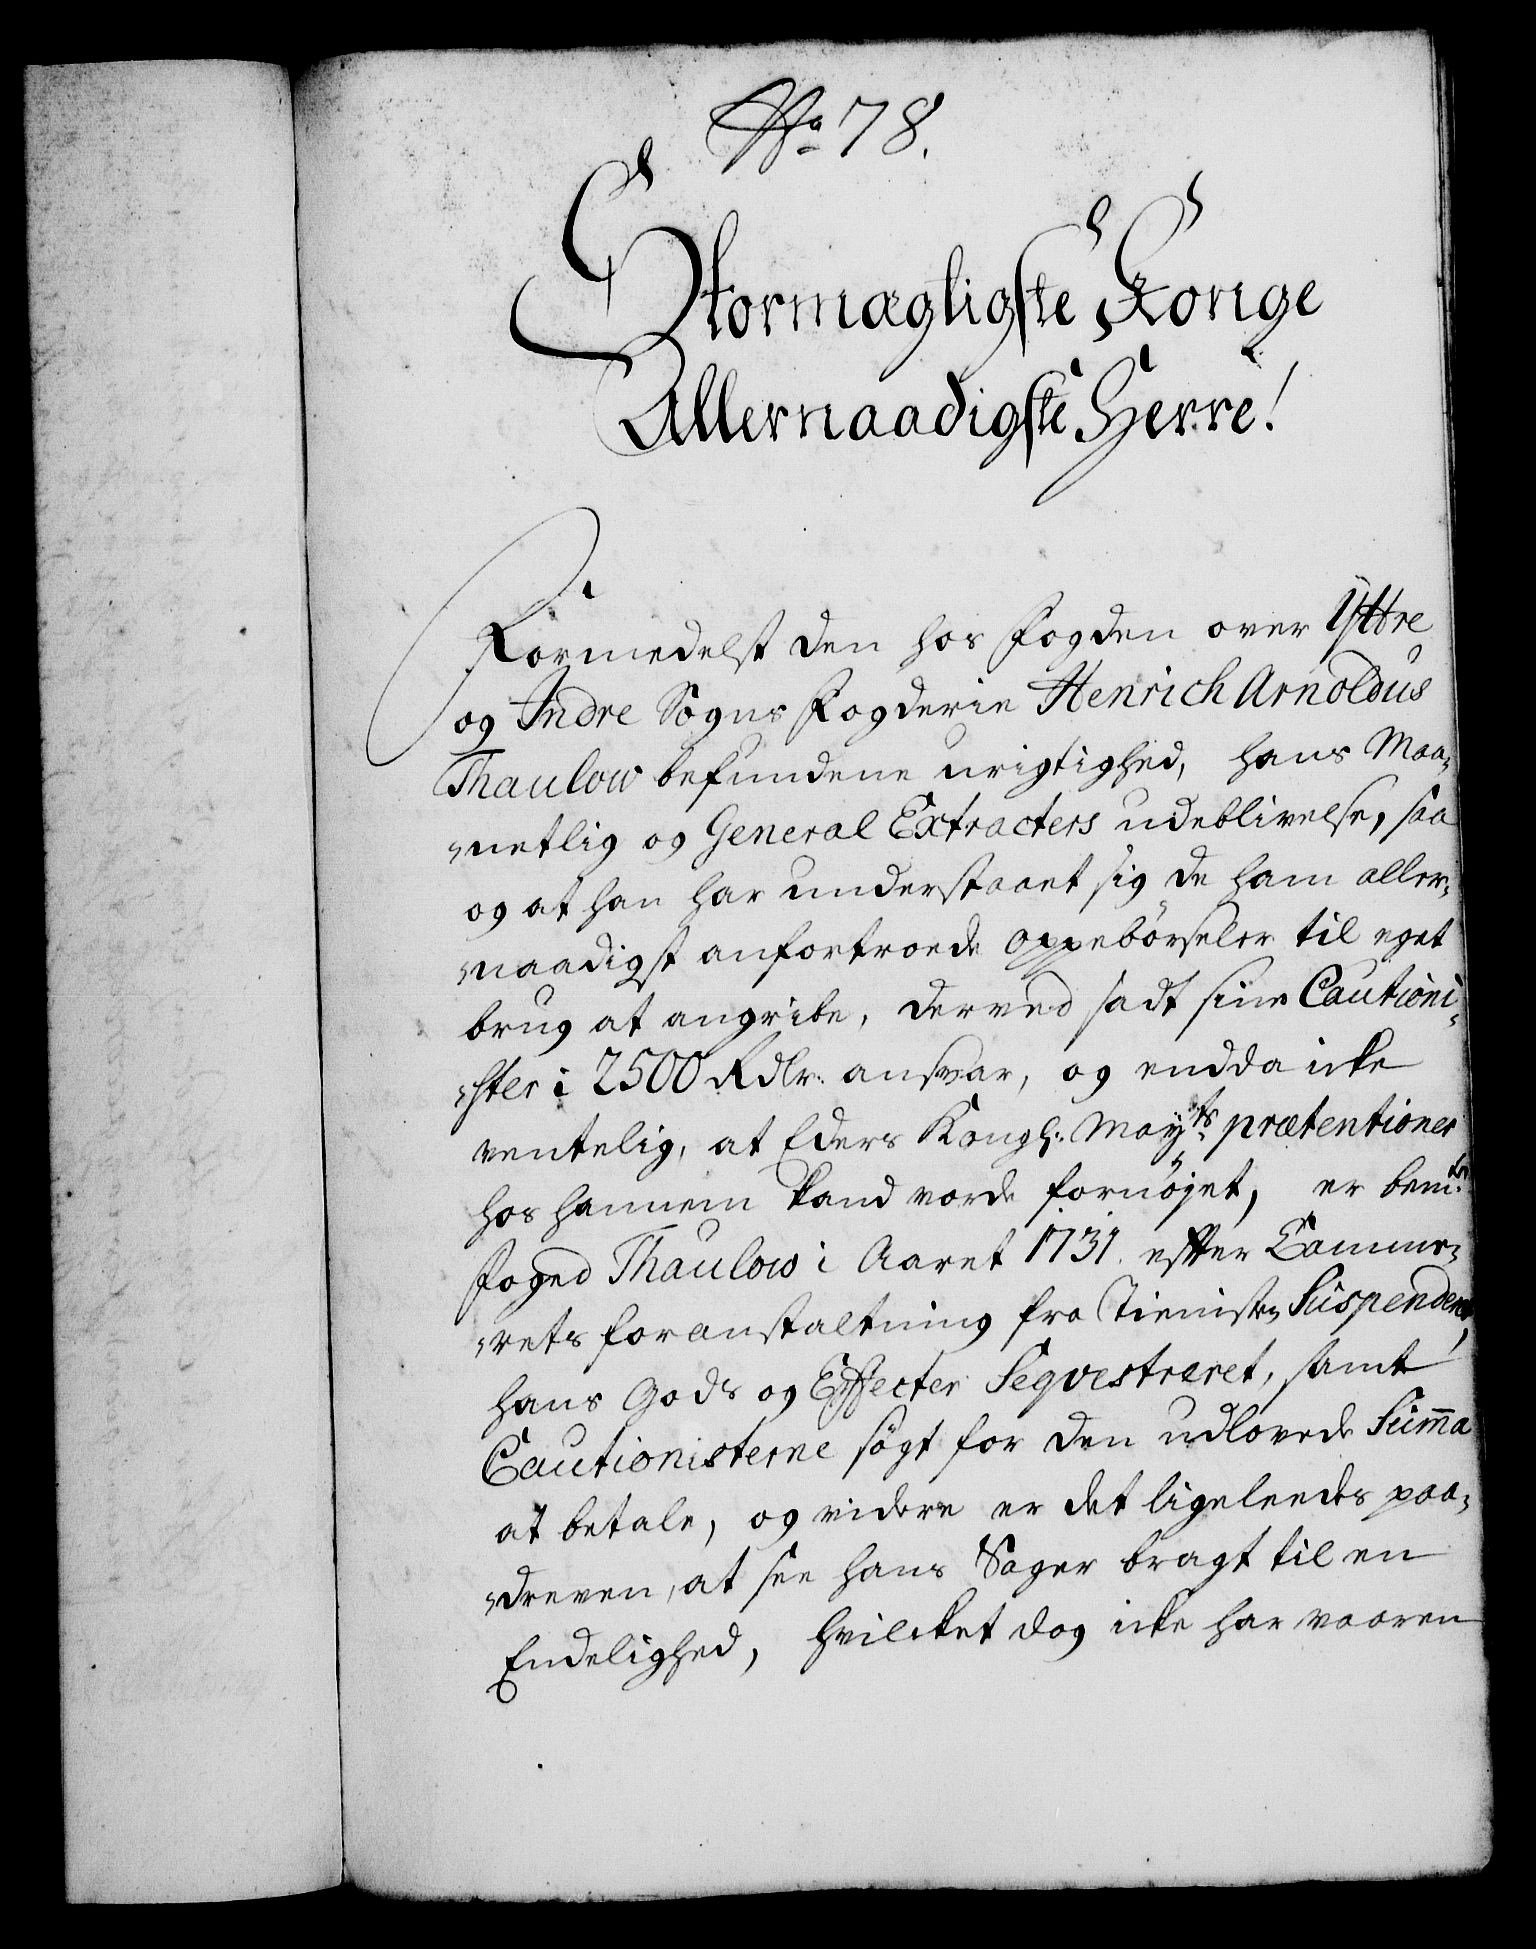 No 78.
Stormægtigste Konge
Allernaadigste Herre!
Formedelst den hos Fogden over Ÿttre
og Indre Sogns Fogderie Henrich Arnoldus
Thaulow befundene urigtighed, hans Maa-
netlig og General Extracters udeblivelse, saa
og at han har understaaet sig de ham aller-
naadigst anfortroede Oppebørseler til eget
brug at angribe, derved sadt sine Cautioni-
ster i 2500 Rdlr: ansvar, og endda icke
ventelig, at Eders Kongl: Mayts prætentioner
hos hannem kand vorde fornøjet, er bemte
Foged Thaulow i Aaret 1731. efter Camme-
rets foranstaltning fra Tienisten Suspenderet,
hans Gods og Effecter Seqvestreret, samt
Cautionisterne søgt for den udlovede Sum̅a
at betale, og videre er det ligeleedes paa-
dreven, at see hans Sager bragt til en
Endelighed, hvilcket dog icke har vaaren